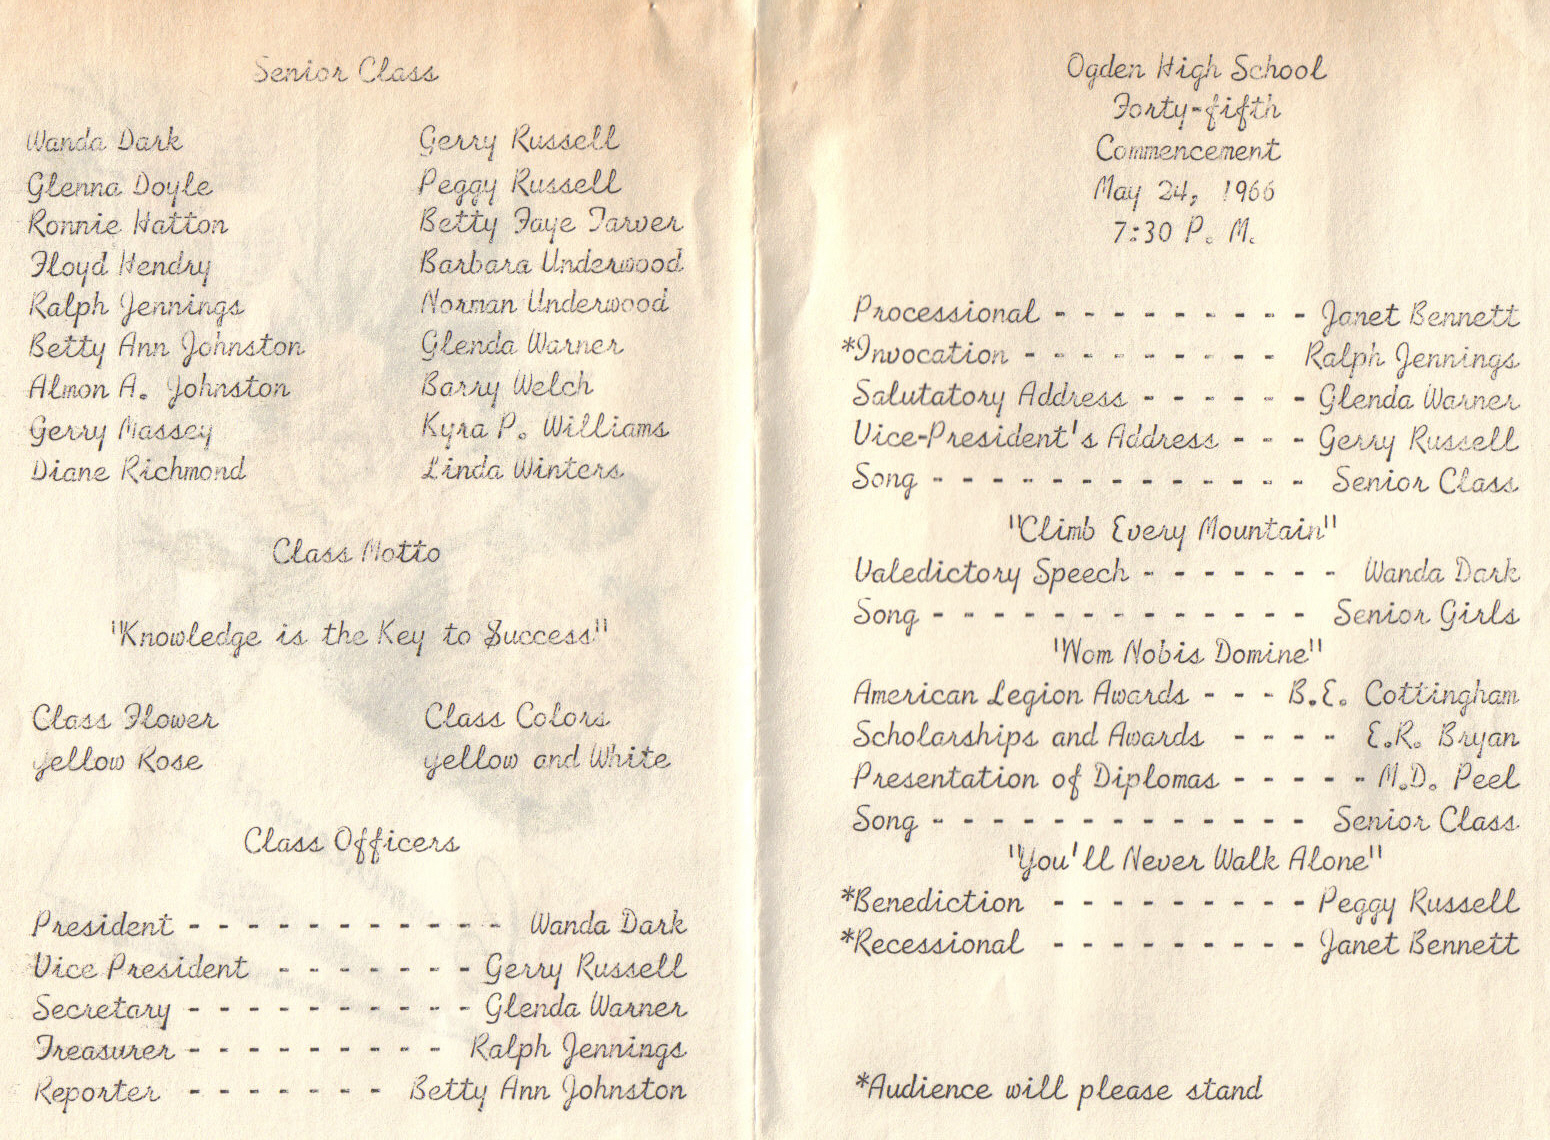 Senior Class
Wanda Dark
Glenna Doyle
Ronnie Hatton
Floyd Hendry
Ralph Jennings
Betty Ann Johnston
Almon A. Johnston
Gerry Massey
Diane Richmond
Gerry Russell
Peggy Russell
Betty Faye Tarver
Barbara Underwood
Norman Underwood
Glenda Warner
Barry Welch
Kyra P. Williams
Linda Winters
Class Motto
"Knowledge is the Key to Success"
Class Flower
Yellow Rose
Class Colors
Yellow and White
Class Officers
President - - - - - - - - - - - Wanda Dark
Vice President - - - - - - - Gerry Russell
Secretary - - - - - - - - - - Glenda Warner
Treasurer - - - - - - - - - Ralph Jennings
Reporter - - - - - - - Betty Ann Johnston
Ogden High School
Forty-fifth
Commencement
May 24, 1966
7:30 P. M.
Processional - - - - - - - - - Janet Bennett
*Invocation - - - - - - - - - Ralph Jennings
Salutatory Address - - - - - - Glenda Warner
Vice-President's Address - - - Gerry Russell
Song - - - - - - - - - - - - - Senior Class
"Climb Every Mountain"
Valedictory Speech - - - - - - - Wanda Dark
Song - - - - - - - - - - - - - Senior Girls
"Nom Nobis Domine"
American Legion Awards - - - B.E. Cottingham
Scholarships and Awards - - - - E.R. Bryan
Presentation of Diplomas - - - - - M.D. Peel
Song - - - - - - - - - - - - - Senior Class
"You'll Never Walk Alone"
*Benediction - - - - - - - - - Peggy Russell
*Recessional - - - - - - - - - Janet Bennett
*Audience will please stand